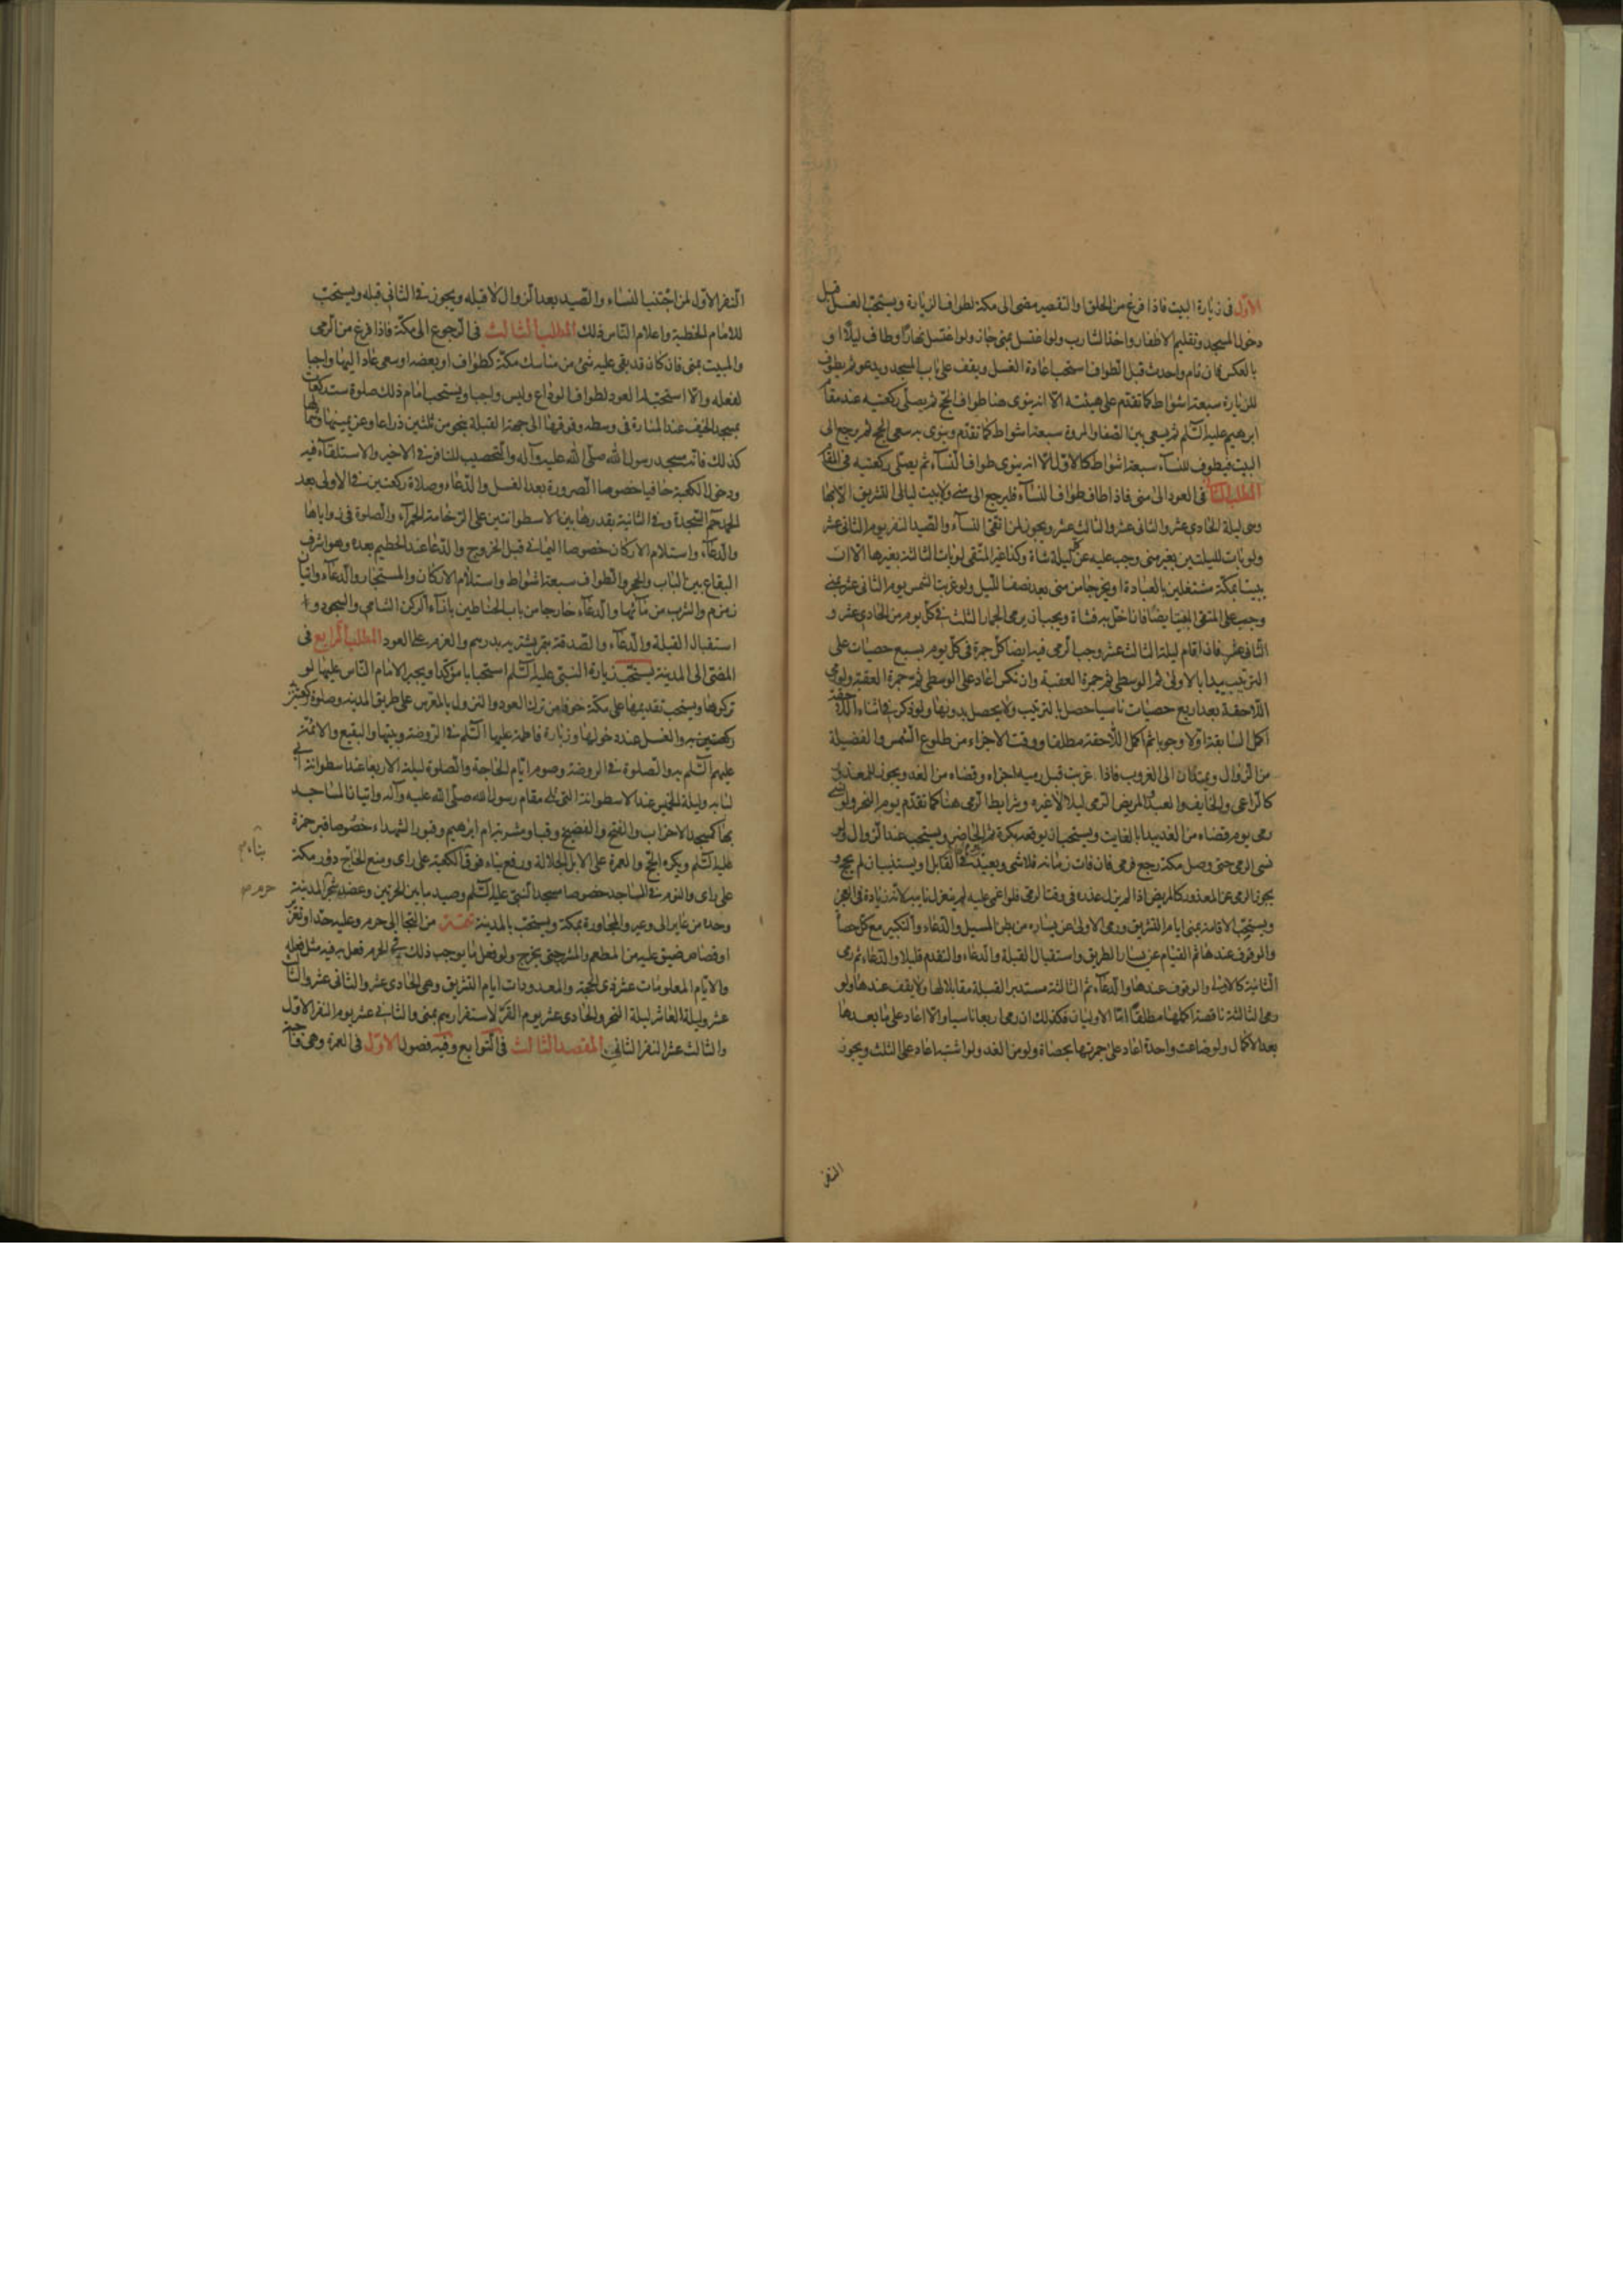 الاوّل فى زيارة البيت فاذا فرغ من الحلق والتقصير مضى الى مكة لطواف الزيارة ويستحب الغسل قبل
دخول المسجد وتقليم الاظفار واخذ الشارب ولو اغتسل بمنى جاز ولو اغتسل نهارًا وطاف ليلًا او
بالعكس فان نام واحدث قبل الطواف استحب اعادة الغسل ويقف على باب المسجد ويدعو ثم يطوف
للزيارة سبعة اشواط كما تقدم على هيئته الا انه ينوى هنا طواف الحج ثم يصلى ركعتيه عند مقام
ابرهيم عليه السّلم ثم يسعى بين الصفا والمروة سبعة اشواط كما تقدم وينوى به سعى الحج ثم يرجع الى
البيت فيطوف للنسآء سبعة اشواط كالاول الا انه ينوى طواف النسآء ثم يصلى ركعتيه فى المقام
المطلب الثانى فى العود الى منى فاذا طاف طواف النسآء فليرجع الى منى ولا يبيت ليالى التشريق الا بها
وهى ليلة الحادى عشر والثانى عشر والثالث عشر ويجوز لمن اتقى النسآء والصيد النفر يوم الثانى عشر
ولو بات الليلتين بغير منى وجب عليه عن كل ليلة شاة وكذا غير المتقى لو بات الثالثة بغيرها الا ان
يبيتا بمكة مشتغلين بالعبادة او يخرجا من منى بعد نصف الليل ولو غربت الشمس يوم الثانى عشر بمنى
وجب على المتقى المبيت ايضًا فان اخل به فشاة ويجب ان يرمى الجمار الثلث فى كل يوم من الحادى عشر و
الثانى عشر فاذا اقام ليلة الثالث عشر وجب الرمى فيه ايضا كل جمرة فى كل يوم بسبع حصيات على
الترتيب يبدا بالاولى ثم الوسطى ثم جمرة العقبة وان نكس اعاد على الوسطى ثم جمرة العقبة ولو رمى
اللاحقة بعد اربع حصيات ناسيا حصل بالترتيب ولا يحصل بدونها ولو ذكر فى اثناء اللاحقة
اكمل السابقة اولا وجوبا ثم اكمل اللاحقة مطلقا ووقت الاجزاء من طلوع الشمس والفضيلة
من الزوال ويمتدان الى الغروب فاذا غربت قبل رميه اخره وقضاه من الغد ويجوز للمعذور
كالراعى والخايف والعبد والمريض الرمى ليلا لا غيره وشرايط الرمى هنا كما تقدم يوم النحر ولو نسى
رمى يوم قضاه من الغد يبدا بالفايت ويستحب ان يوقعه بكرة ثم الحاضر ويستحب عند الزوال ولو
نسى الرمى حتى وصل مكة رجع فرمى فان فات زمانه فلا شى ويعيد فى القابل او يستنيب ان لم يحج و
يجوز الرمى عن المعذور كالمريض اذا لم يزل عذره فى وقت الرمى فلو اغمى عليه لم ينعزل نايبه لانه زيادة فى العجز
ويستحب الاقامة بمنى ايام التشريق ورمى الاولى عن يساره من بطن المسيل والدعاء والتكبير مع كل حصاة
والوقوف عندها ثم القيام عن يسار الطريق واستقبال القبلة والدعاء والتقدم قليلا والدعاء ثم رمى
الثانية كالاولى والوقوف عندها والدعآء ثم الثالثة مستدبر القبلة مقابلا لها ولا يقف عندها ولو
رمى الثالثة ناقصة اكملها مطلقًا اما الاوليان فكذلك ان رمى اربعا ناسيا والا اعاد على ما بعدها
بعد الاكمال ولو ضاعت واحدة اعاد على جمرتها بحصاة ولو من الغد ولو اشتبه اعاد على الثلث ويجوز
النفر
النفر الاول لمن اجتنب النساء والصيد بعد الزوال لا قبله ويجوز فى الثانى قبله ويستحب
للامام الخطبة واعلام الناس ذلك المطلب الثالث فى الرجوع الى مكة فاذا فرغ من الرمى
والمبيت بمنى فان كان قد بقى عليه شئ من مناسك مكة كطواف او بعضه او سعى عاد اليها واجبا
لفعله والا استحب له العود لطواف الوداع وليس واجبا ويستحب امام ذلك صلوة ست ركعات
بمسجد الخيف عند المنارة فى وسطه وفوقها الى جهة القبلة بنحو من ثلثين ذراعا وعن يمينها وشمالها
كذلك فانه مسجد رسول الله صلى الله عليه وآله والتحصيب للنافر فى الاخير والاستلقآء فيه
ودخول الكعبة حافيا خصوصا الصرورة بعد الغسل والدعاء وصلاة ركعتين فى الاولى بعد
الحمد حم السجدة وفى الثانية بقدرها بين الاسطوانتين على الرخامة الحمرآء والصلوة فى زواياها
والدعآء واستلام الاركان خصوصا اليمانى قبل الخروج والدعا عند الحطيم بعده وهو اشرف
البقاع بين الباب والحجر والطواف سبعة اشواط واستلام الاركان والمستجار والدعآء واتيان
زمزم والشرب من مآئها والدعآء خارجا من باب الحناطين بازآء الركن الشامى والسجود و
استقبال القبلة والدعآء والصدقة بتمر يشتريه بدرهم والعزم على العود المطلب الرابع فى
المضى الى المدينة يستحب زيارة النبى عليه السّلم استحبابا مؤكدا ويجبر الامام الناس عليها لو
تركوها ويستحب تقديمها على مكة خوفا من ترك العود والنزول بالمعرس على طريق المدينة وصلوة
ركعتين به والغسل عند دخولها وزيارة فاطمة عليها السّلم فى الروضة وبيتها والبقيع والائمة
عليهم السّلم به والصلوة فى الروضة وصوم ايام الحاجة والصلوة ليلة الاربعا عند اسطوانة ابى
لبابه وليلة الخميس عند الاسطوانة التى تلى مقام رسول الله صلى الله عليه وآله واتيان المساجد
بها كمسجد الاحزاب والفتح والفضيخ وقبا ومشربة ام ابراهيم وقبور الشهداء خصوصا قبر حمزة
عليه السّلم ويكره الحج والعمرة على الابل الجلالة ورفع بناء فوق الكعبة على راى ومنع الحاج دور مكة
على راى والنوم فى المساجد خصوصا مسجد النبى عليه السّلم وصيد ما بين الحرتين وعضد شجر المدينة
وحده من عاير الى وعير والمجاورة بمكة ويستحب بالمدينة تتمة من التجا الى حرم وعليه حد او تعزير
او قصاص ضيق عليه فى المطعم والمشرب حتى يخرج ولو فعل ما يوجب ذلك فى الحرم فعل به فيه مثل فعله
والايام المعلومات عشر ذى الحجة والمعدودات ايام التشريق وهى الحادى عشر والثانى عشر والثالث
عشر وليلة العاشر ليلة النحر والحادى عشر يوم القر لاستقرارهم بمنى والثانى عشر يوم النفر الاول
والثالث عشر النفر الثانى المقصد الثالث فى التوابع وفيه فصول الاول فى العمرة وهى واجبة
بناء
حرم